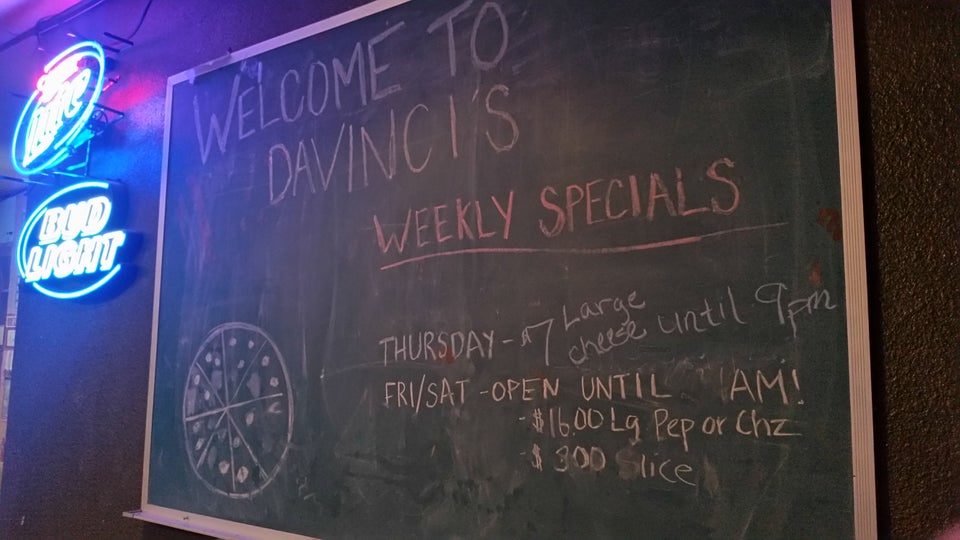 WELCOME TO
DAVINCI'S
WEEKLY SPECIALS
THURSDAY - $7 Large cheese until 9pm
FRI/SAT - OPEN UNTIL AM!
- $16.00 Lg Pep or Chz
- $3.00 Slice
Lite
BUD
LIGHT